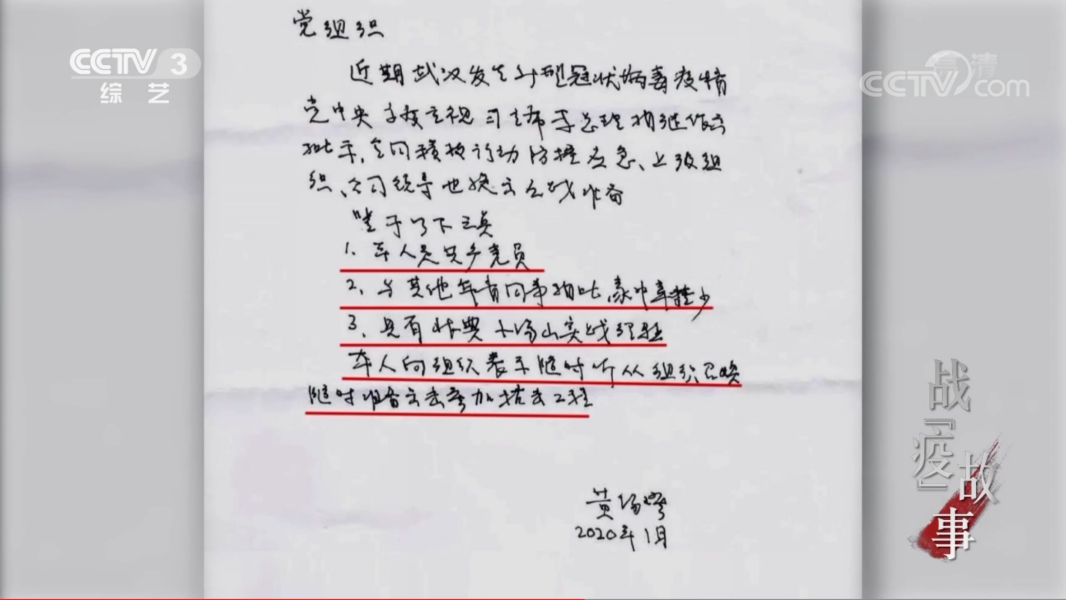 CCTV 3
综艺
高清
CCTV.com
党组织
近期武汉发生新型冠状病毒疫情
党中央高度重视 习主席李总理相继作出
批示,全国积极行动防控应急、上级组
织、公司领导也随之应战准备
鉴于以下三点
1、本人是共产党员
2、与其他年青同事相比,家中牵挂少
3、具有非典小汤山实战经验
本人向组织表示随时听从组织召唤
随时准备出去参加援建工程
2020年1月
战『疫』故事